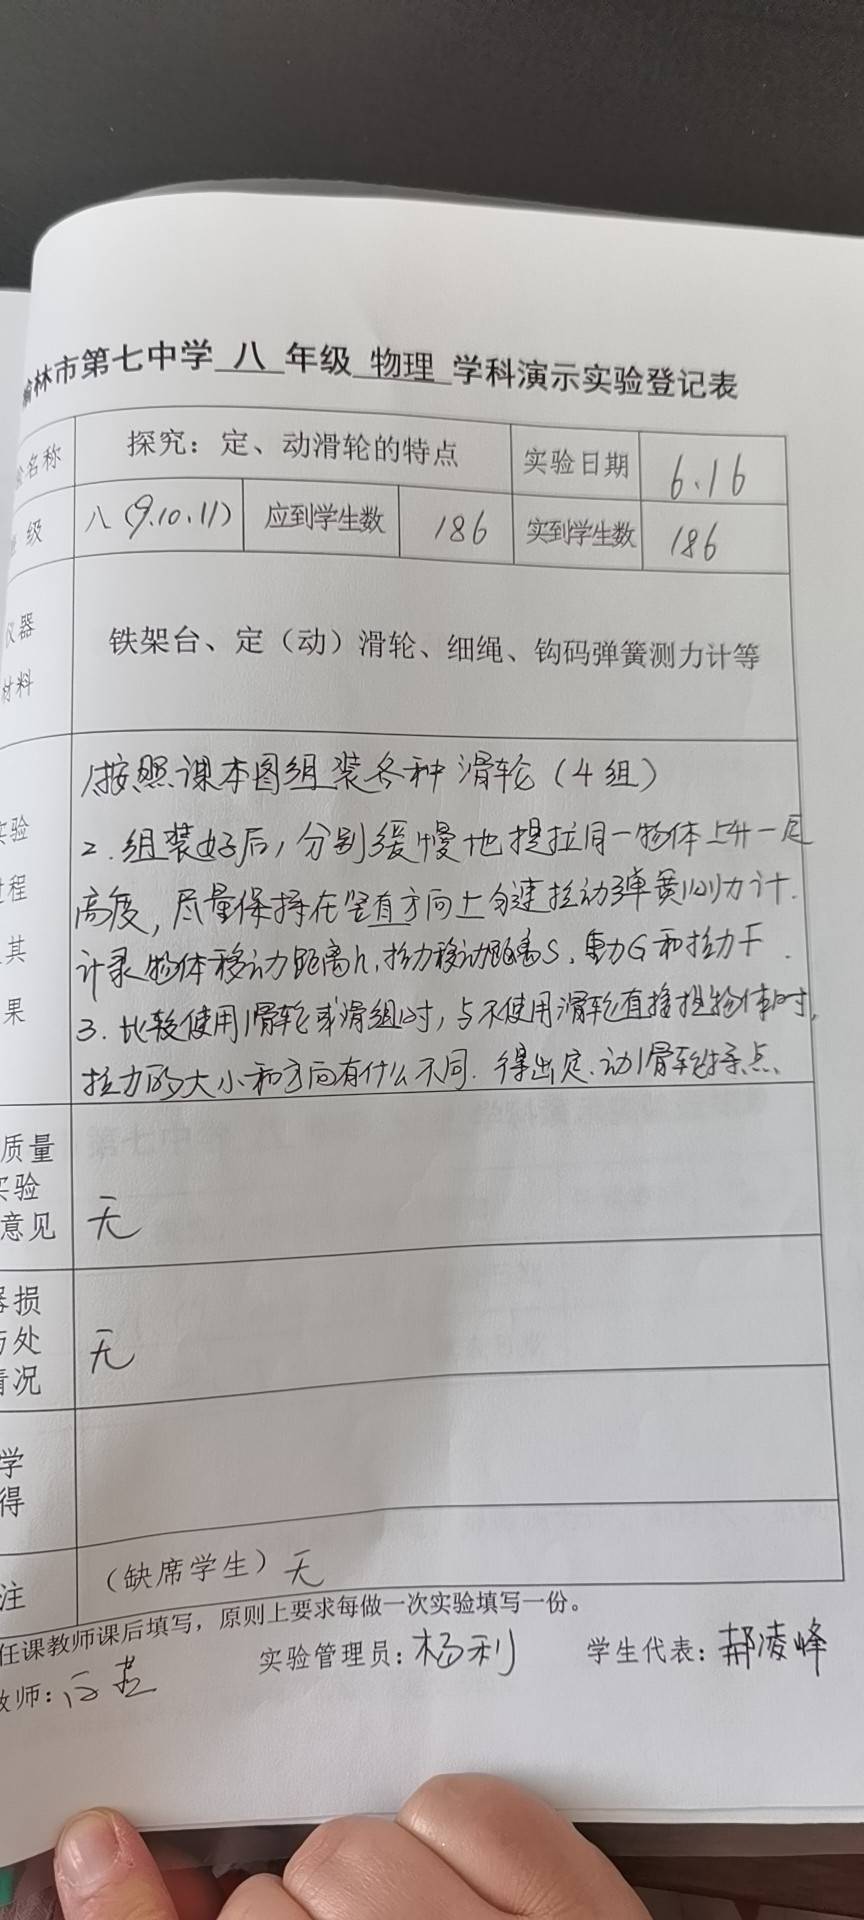 榆林市第七中学 八 年级 物理 学科演示实验登记表
名称 探究：定、动滑轮的特点 实验日期 6.16
级 八（9.10.11） 应到学生数 186 实到学生数 186
仪器
材料
铁架台、定（动）滑轮、细绳、钩码弹簧测力计等
实验
过程
其
果
1按照课本图组装各种滑轮（4组）
2.组装好后，分别缓慢地提拉同一物体上升一定
高度，尽量保持在竖直方向上匀速拉动弹簧测力计.
计录物体移动距离h,拉力移动距离S、重力G和拉力F.
3.比较使用滑轮或滑组时，与不使用滑轮直接提物体时，
拉力的大小和方向有什么不同.得出定.动滑轮特点.
质量
实验
意见
无
器损
与处
情况
无
学
得
注 （缺席学生）无
任课教师课后填写，原则上要求每做一次实验填写一份。
教师： 实验管理员：杨利 学生代表：郝凌峰